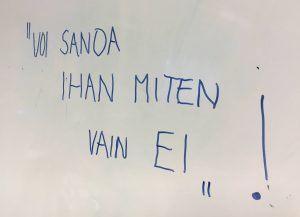 "VOI SANOA
IHAN MITEN
VAIN EI„!